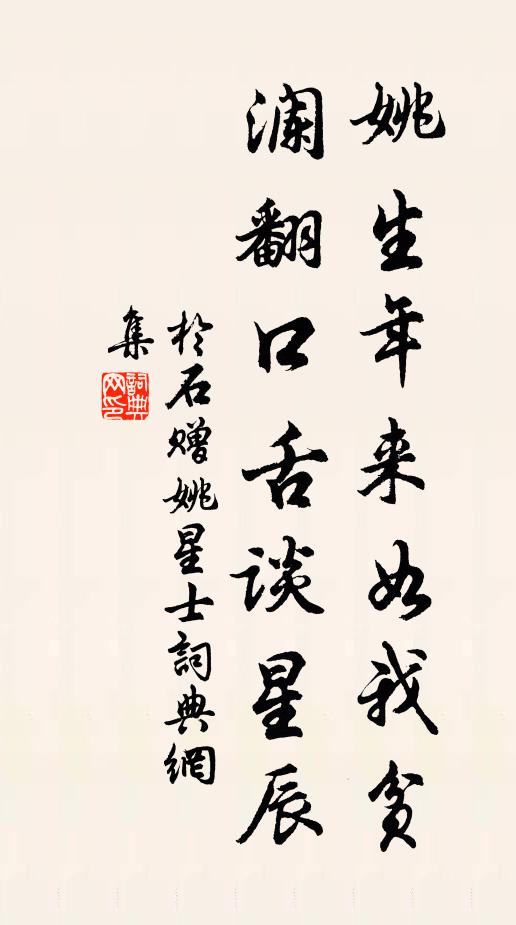 姚生年来如我贫
澜翻口舌谈星辰
於石赠姚星士詞典網
集
詞典
网印